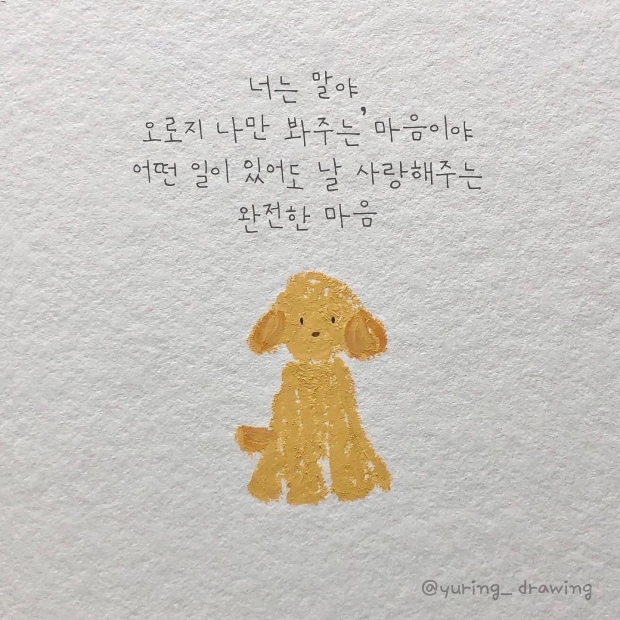 너는 말야,
오로지 나만 봐주는 마음이야
어떤 일이 있어도 날 사랑해주는
완전한 마음
@yuring_drawing